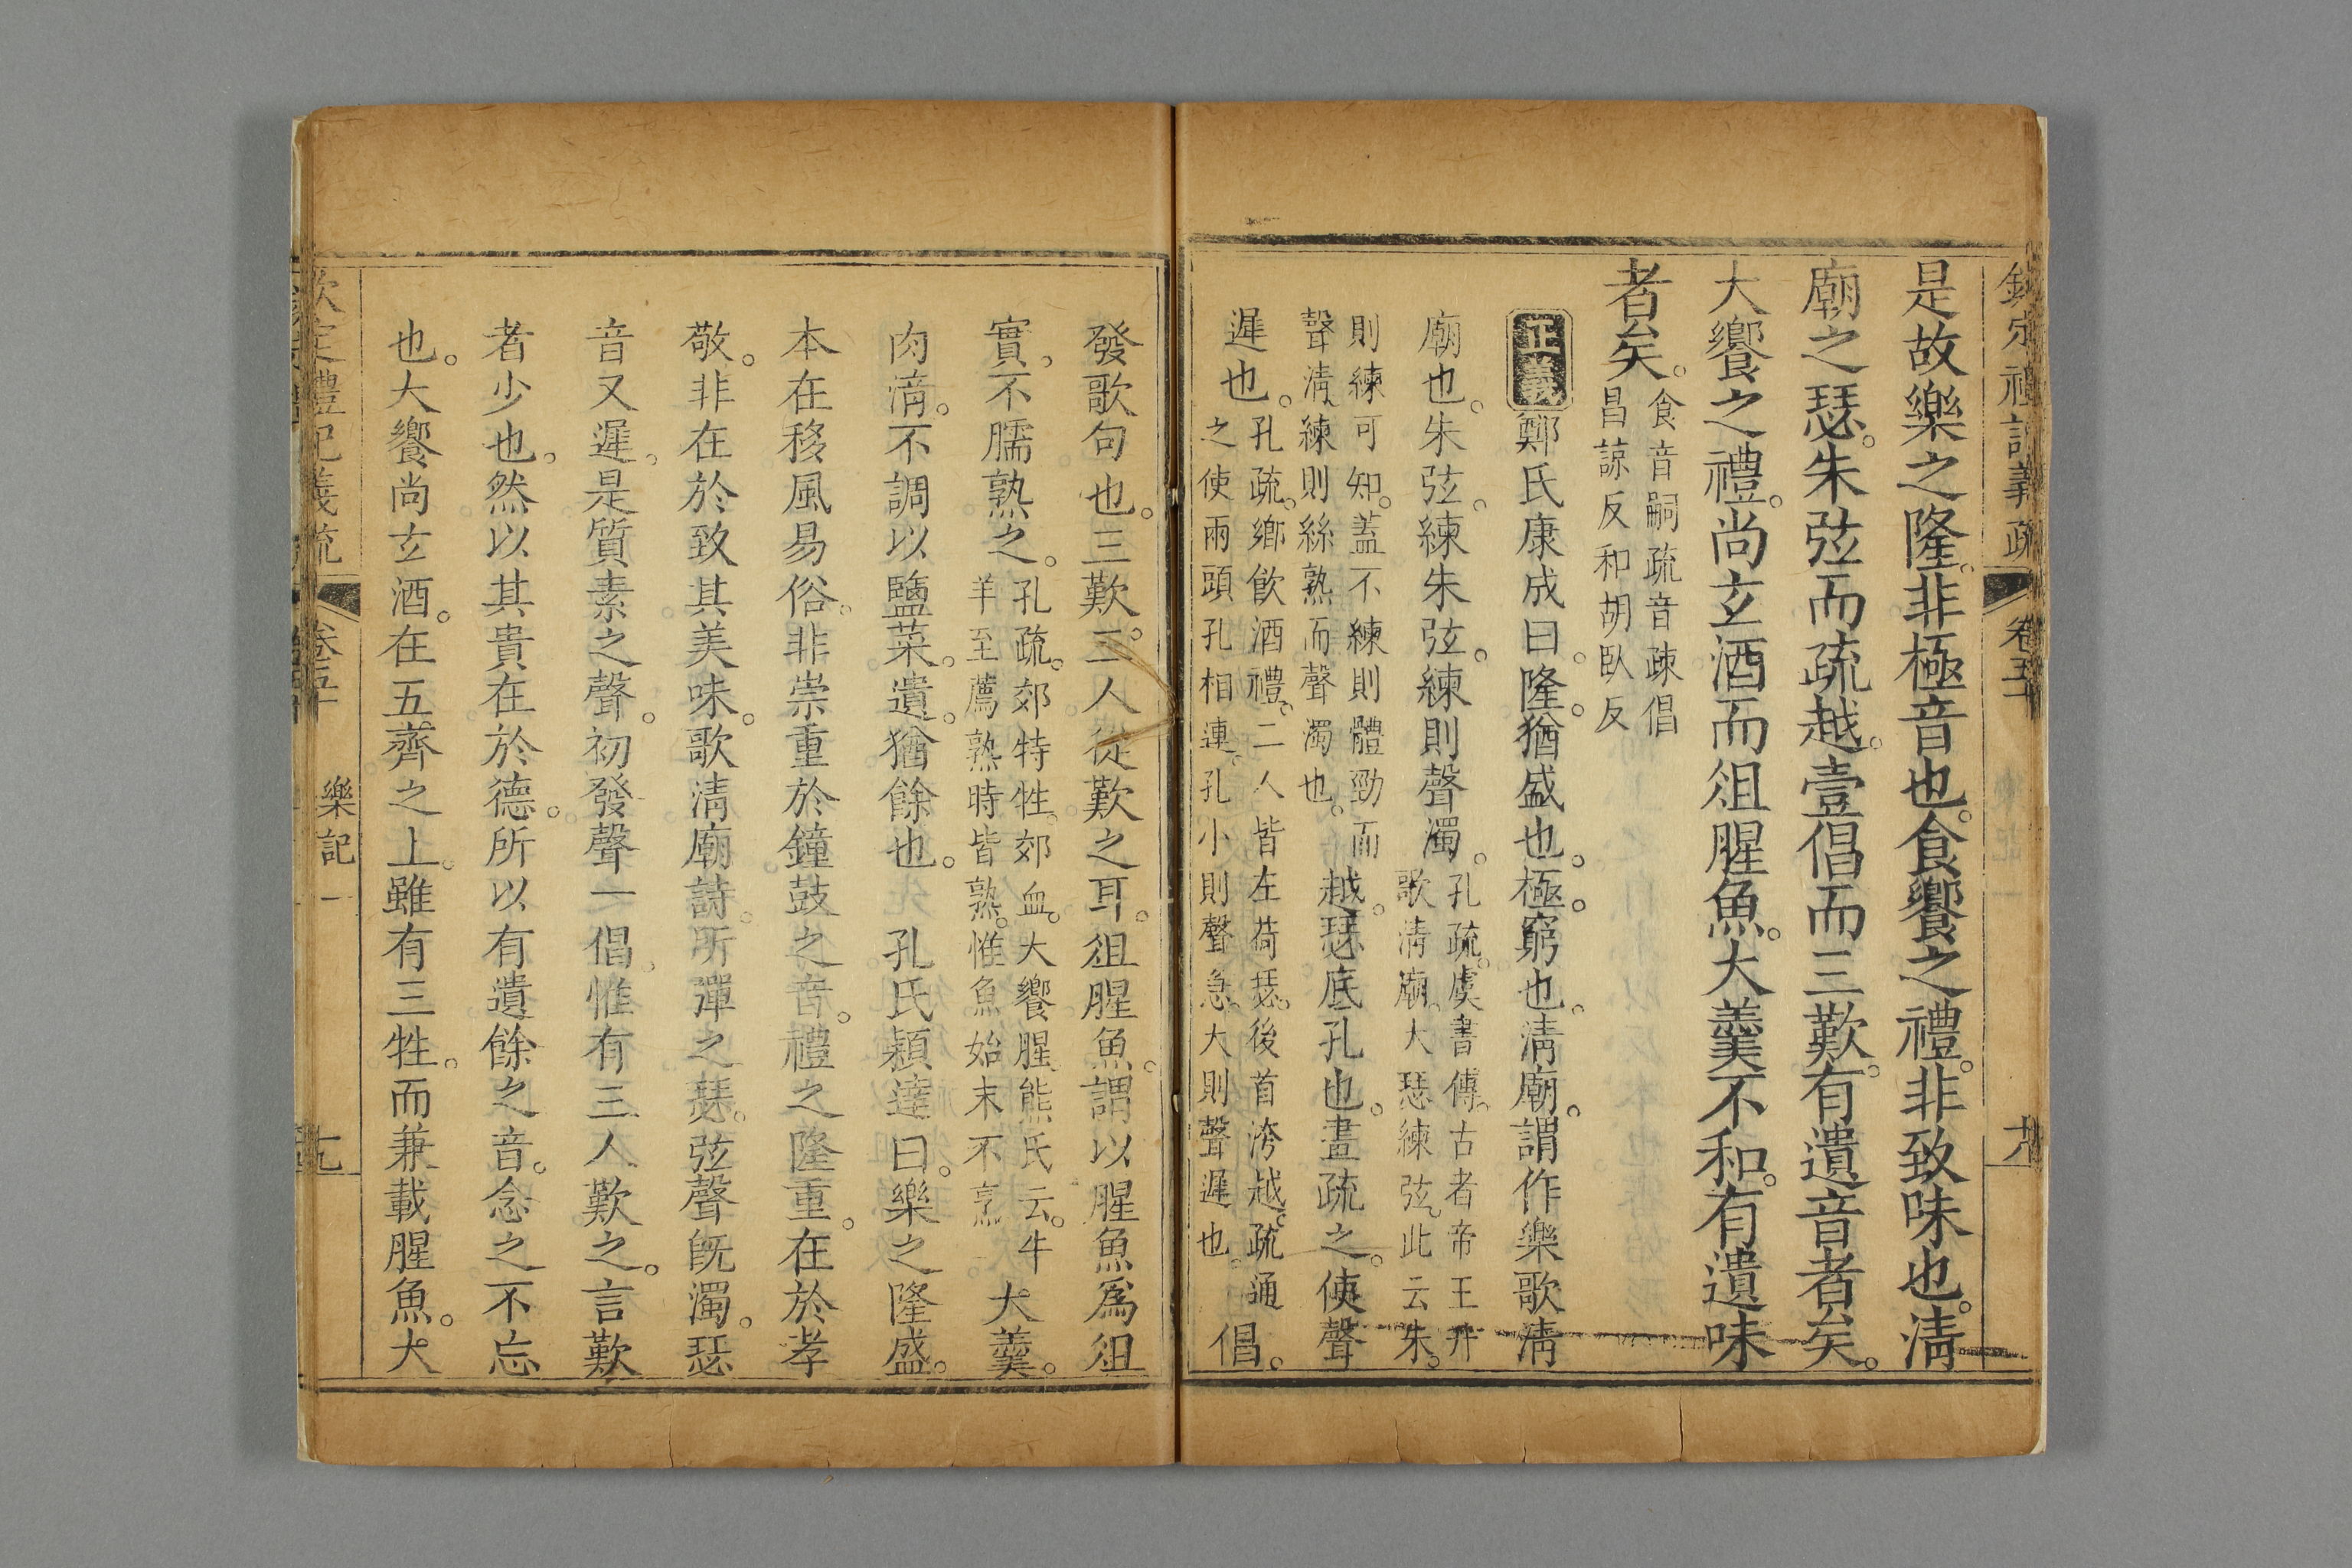 欽定禮記義疏 卷五十
是故樂之隆。非極音也。食饗之禮。非致味也。淸
廟之瑟。朱弦而疏越。壹倡而三歎。有遺音者矣。
大饗之禮。尚玄酒而俎腥魚。大羹不和。有遺味
者矣。食音嗣疏音疎倡昌諒反和胡臥反
正義鄭氏康成曰。隆。猶盛也。極。窮也。淸廟。謂作樂歌淸
廟也。朱弦。練朱弦。練則聲濁。孔疏。虞書傳。古者帝王升歌淸廟。大瑟練弦。此云朱。
則練可知。蓋不練則體勁而聲淸。練則絲熟而聲濁也。越。瑟底孔也。畫疏之。使聲
遲也。孔疏。鄉飮酒禮。二人皆左荷瑟。後首挎越。疏通之使兩頭孔相連。孔小則聲急。大則聲遲也。倡。
發歌句也。三歎。三人從歎之耳。俎腥魚。謂以腥魚爲俎
實。不臑熟之。孔疏。郊特牲。郊血。大饗腥。熊氏云。牛羊至薦熟時皆熟。惟魚始末不烹。大羹。
肉湇。不調以鹽菜。遺。猶餘也。 孔氏穎達曰。樂之隆盛。
本在移風易俗。非崇重於鐘鼓之音。禮之隆重。在於孝
敬。非在於致其美味。歌淸廟詩。所彈之瑟。弦聲旣濁。瑟
音又遲。是質素之聲。初發聲一倡。惟有三人歎之。言歎
者少也。然以其貴在於德。所以有遺餘之音。念之不忘
也。大饗尚玄酒。在五齊之上。雖有三牲。而兼載腥魚。大
欽定禮記義疏 卷五十 樂記一